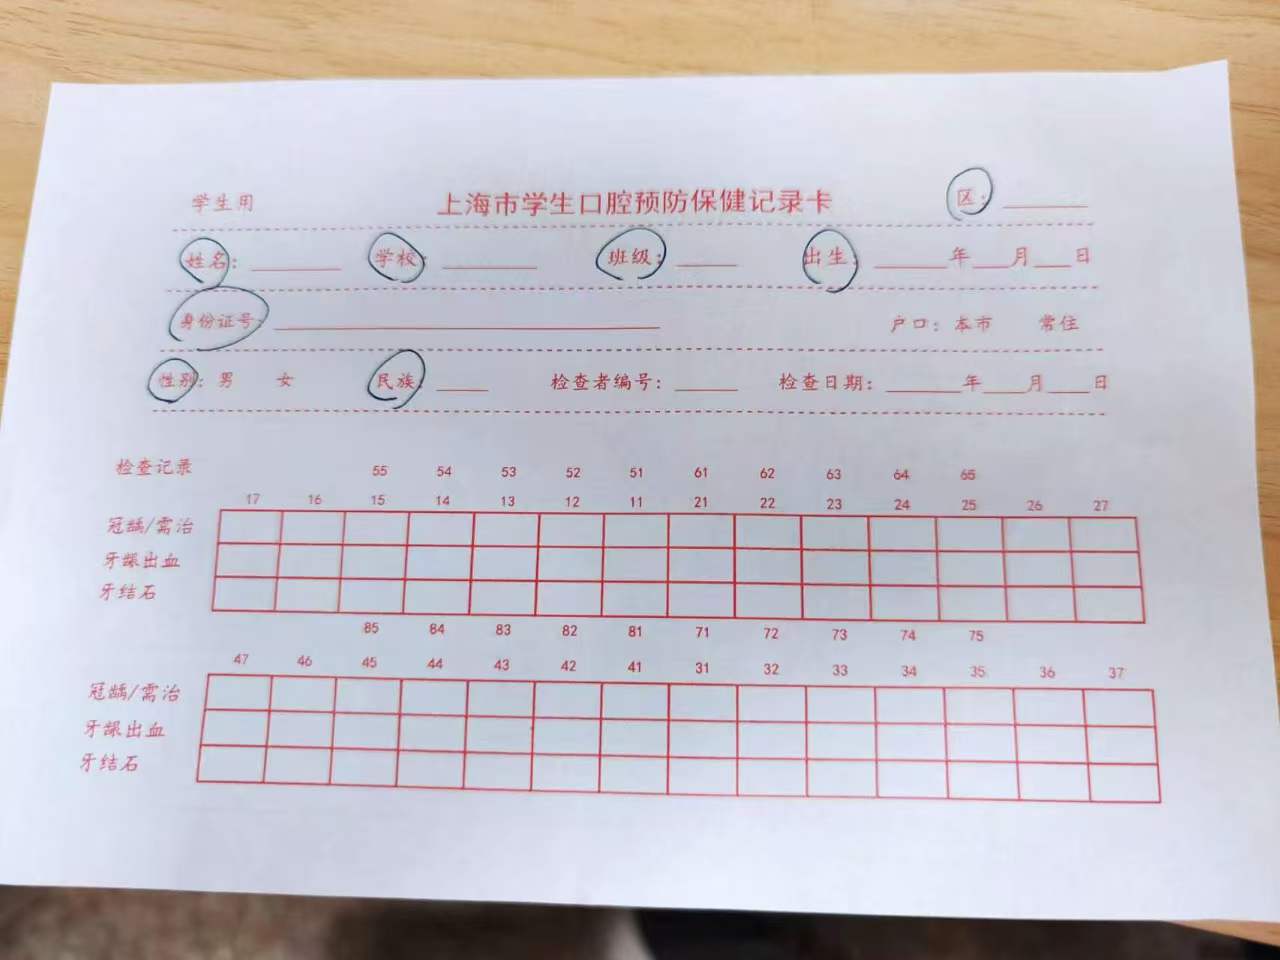 学生用 上海市学生口腔预防保健记录卡 区：
姓名： 学校： 班级： 出生： 年 月 日
身份证号： 户口：本市 常住
性别：男 女 民族： 检查者编号： 检查日期： 年 月 日
检查记录 55 54 53 52 51 61 62 63 64 65
17 16 15 14 13 12 11 21 22 23 24 25 26 27
冠龋/需治
牙龈出血
牙结石
85 84 83 82 81 71 72 73 74 75
47 46 45 44 43 42 41 31 32 33 34 35 36 37
冠龋/需治
牙龈出血
牙结石